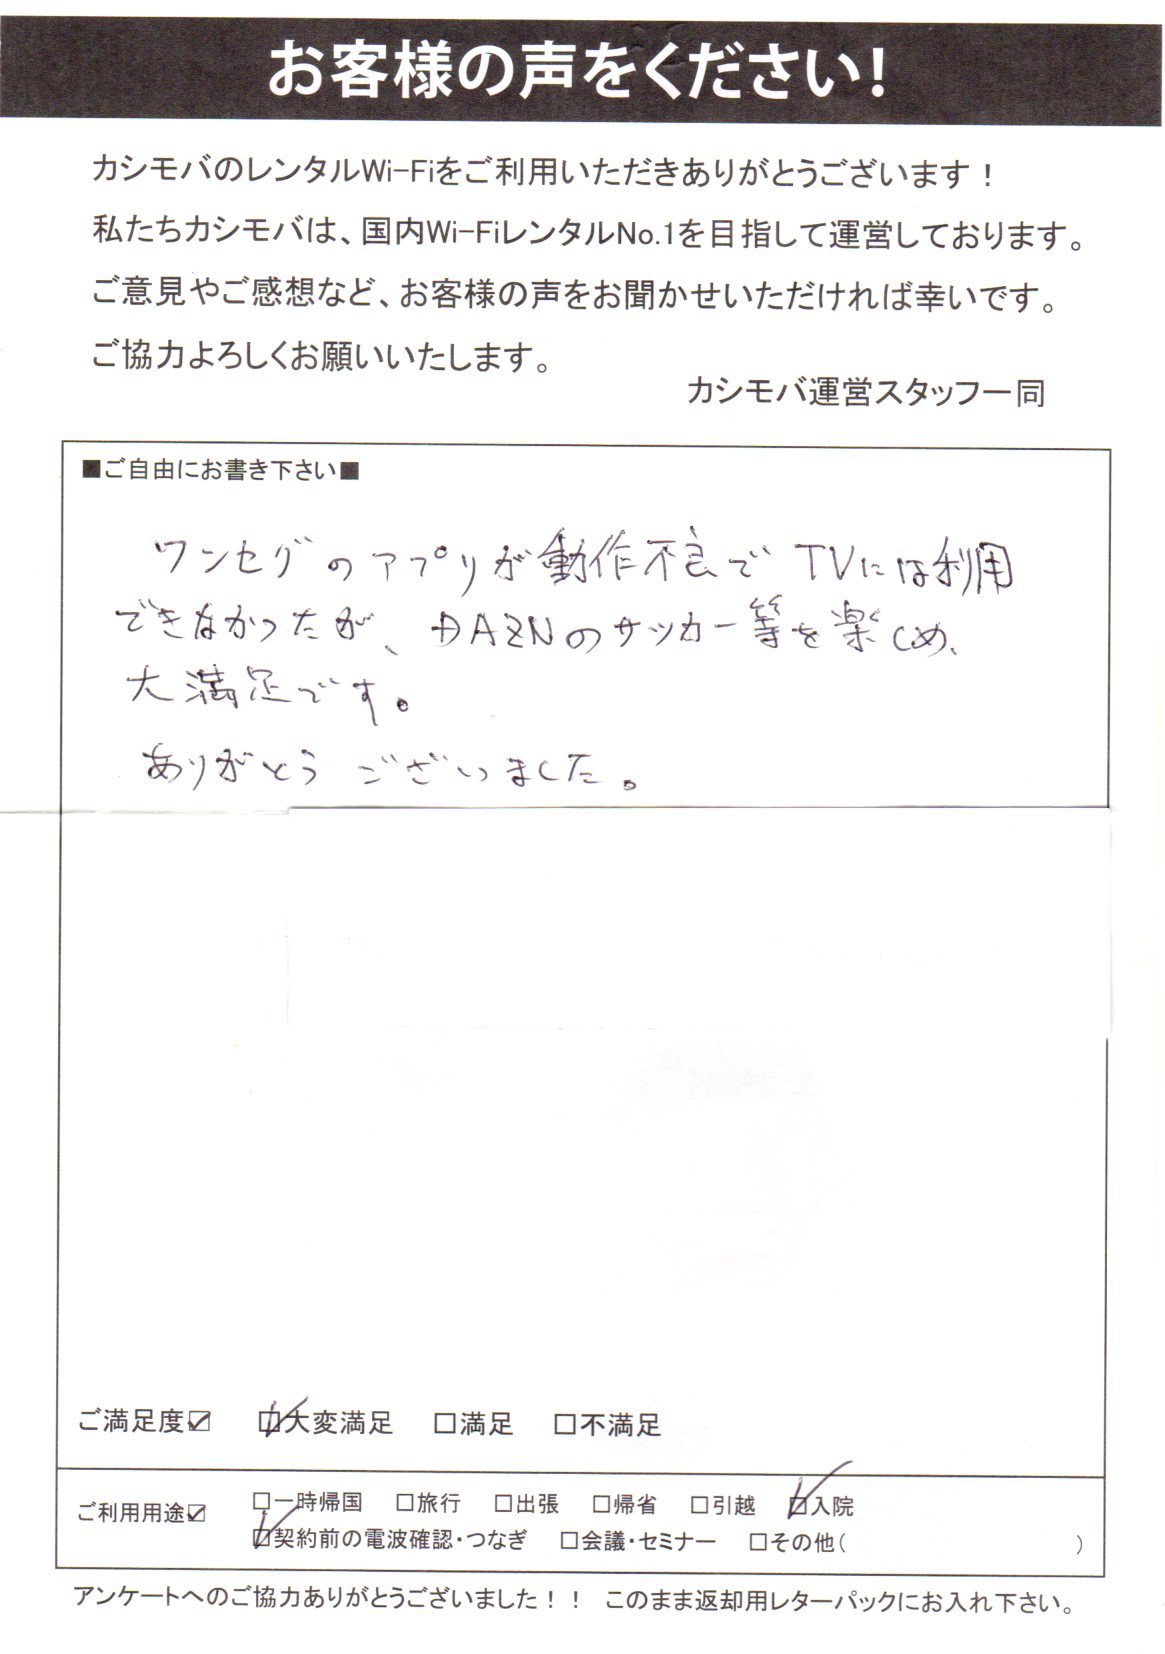 お客様の声をください!
カシモバのレンタルWi-Fiをご利用いただきありがとうございます！
私たちカシモバは、国内Wi-FiレンタルNo.1を目指して運営しております。
ご意見やご感想など、お客様の声をお聞かせいただければ幸いです。
ご協力よろしくお願いいたします。
カシモバ運営スタッフ一同
■ご自由にお書き下さい■
ワンセグのアプリが動作不良でTVには利用
できなかったが、DAZNのサッカー等を楽しめ、
大満足です。
ありがとうございました。
ご満足度☑ ☑大変満足 □満足 □不満足
ご利用用途☑ □一時帰国 □旅行 □出張 □帰省 □引越 ☑入院
☑契約前の電波確認・つなぎ □会議・セミナー □その他( )
アンケートへのご協力ありがとうございました！！ このまま返却用レターパックにお入れ下さい。